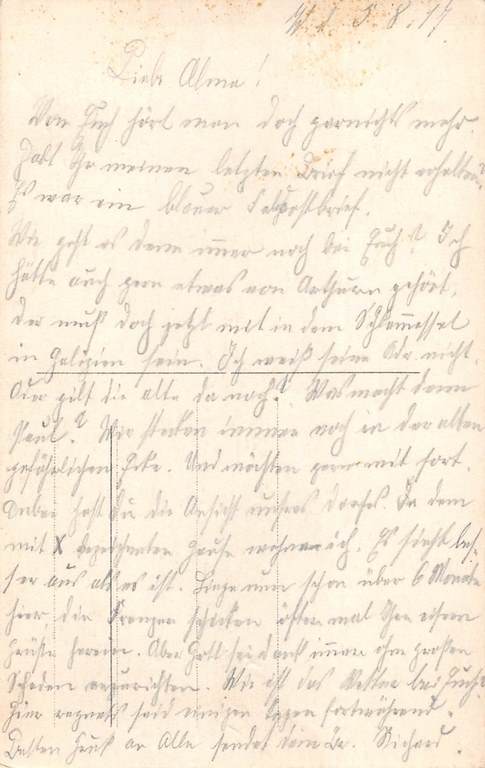 W. d. 5.8.17
Liebe Alma!
Von Euch hört man doch garnichts mehr.
Habt Ihr meinen letzten Brief nicht erhalten?
Es war ein blauer Feldpostbrief.
Wie geht es denn immer noch bei Euch? Ich
hätte auch gern etwas von Arthurn gehört,
der muß doch jetzt mit in dem Schlamassel
in Galizien sein. Ich weiß seine Adr. nicht.
Oder gilt die alte da noch? Was macht denn
Paul? Wir stecken immer noch in der alten
gefährlichen Ecke. Und möchten gerne mit fort.
Anbei hast Du die Ansicht unsres Dorfes. In dem
mit X bezeichneten Hause wohne ich. Es sieht bes-
ser aus als es ist. Liege nun schon über 6 Monate
hier die Franzen schicken öfter mal Ihre eisern
Grüße herein. Aber Gott sei dank immer ohne großen
Schaden anzurichten. Wie ist das Wetter bei Euch?
Hier regnets seid einigen Tagen fortwährend.
Besten Gruß an Alle sendet Dein Br. Richard.